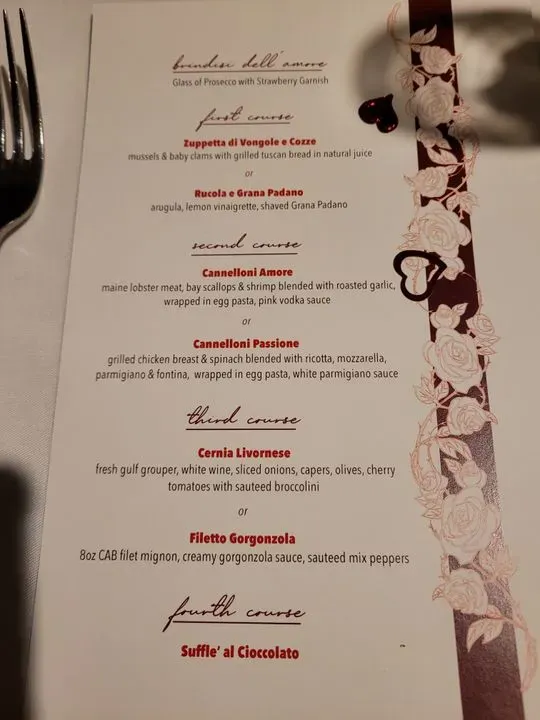 brindisi dell'amore
Glass of Prosecco with Strawberry Garnish
first course
Zuppetta di Vongole e Cozze
mussels & baby clams with grilled tuscan bread in natural juice
or
Rucola e Grana Padano
arugula, lemon vinaigrette, shaved Grana Padano
second course
Cannelloni Amore
maine lobster meat, bay scallops & shrimp blended with roasted garlic,
wrapped in egg pasta, pink vodka sauce
or
Cannelloni Passione
grilled chicken breast & spinach blended with ricotta, mozzarella,
parmigiano & fontina, wrapped in egg pasta, white parmigiano sauce
third course
Cernia Livornese
fresh gulf grouper, white wine, sliced onions, capers, olives, cherry
tomatoes with sauteed broccolini
or
Filetto Gorgonzola
8oz CAB filet mignon, creamy gorgonzola sauce, sauteed mix peppers
fourth course
Suffle' al Cioccolato